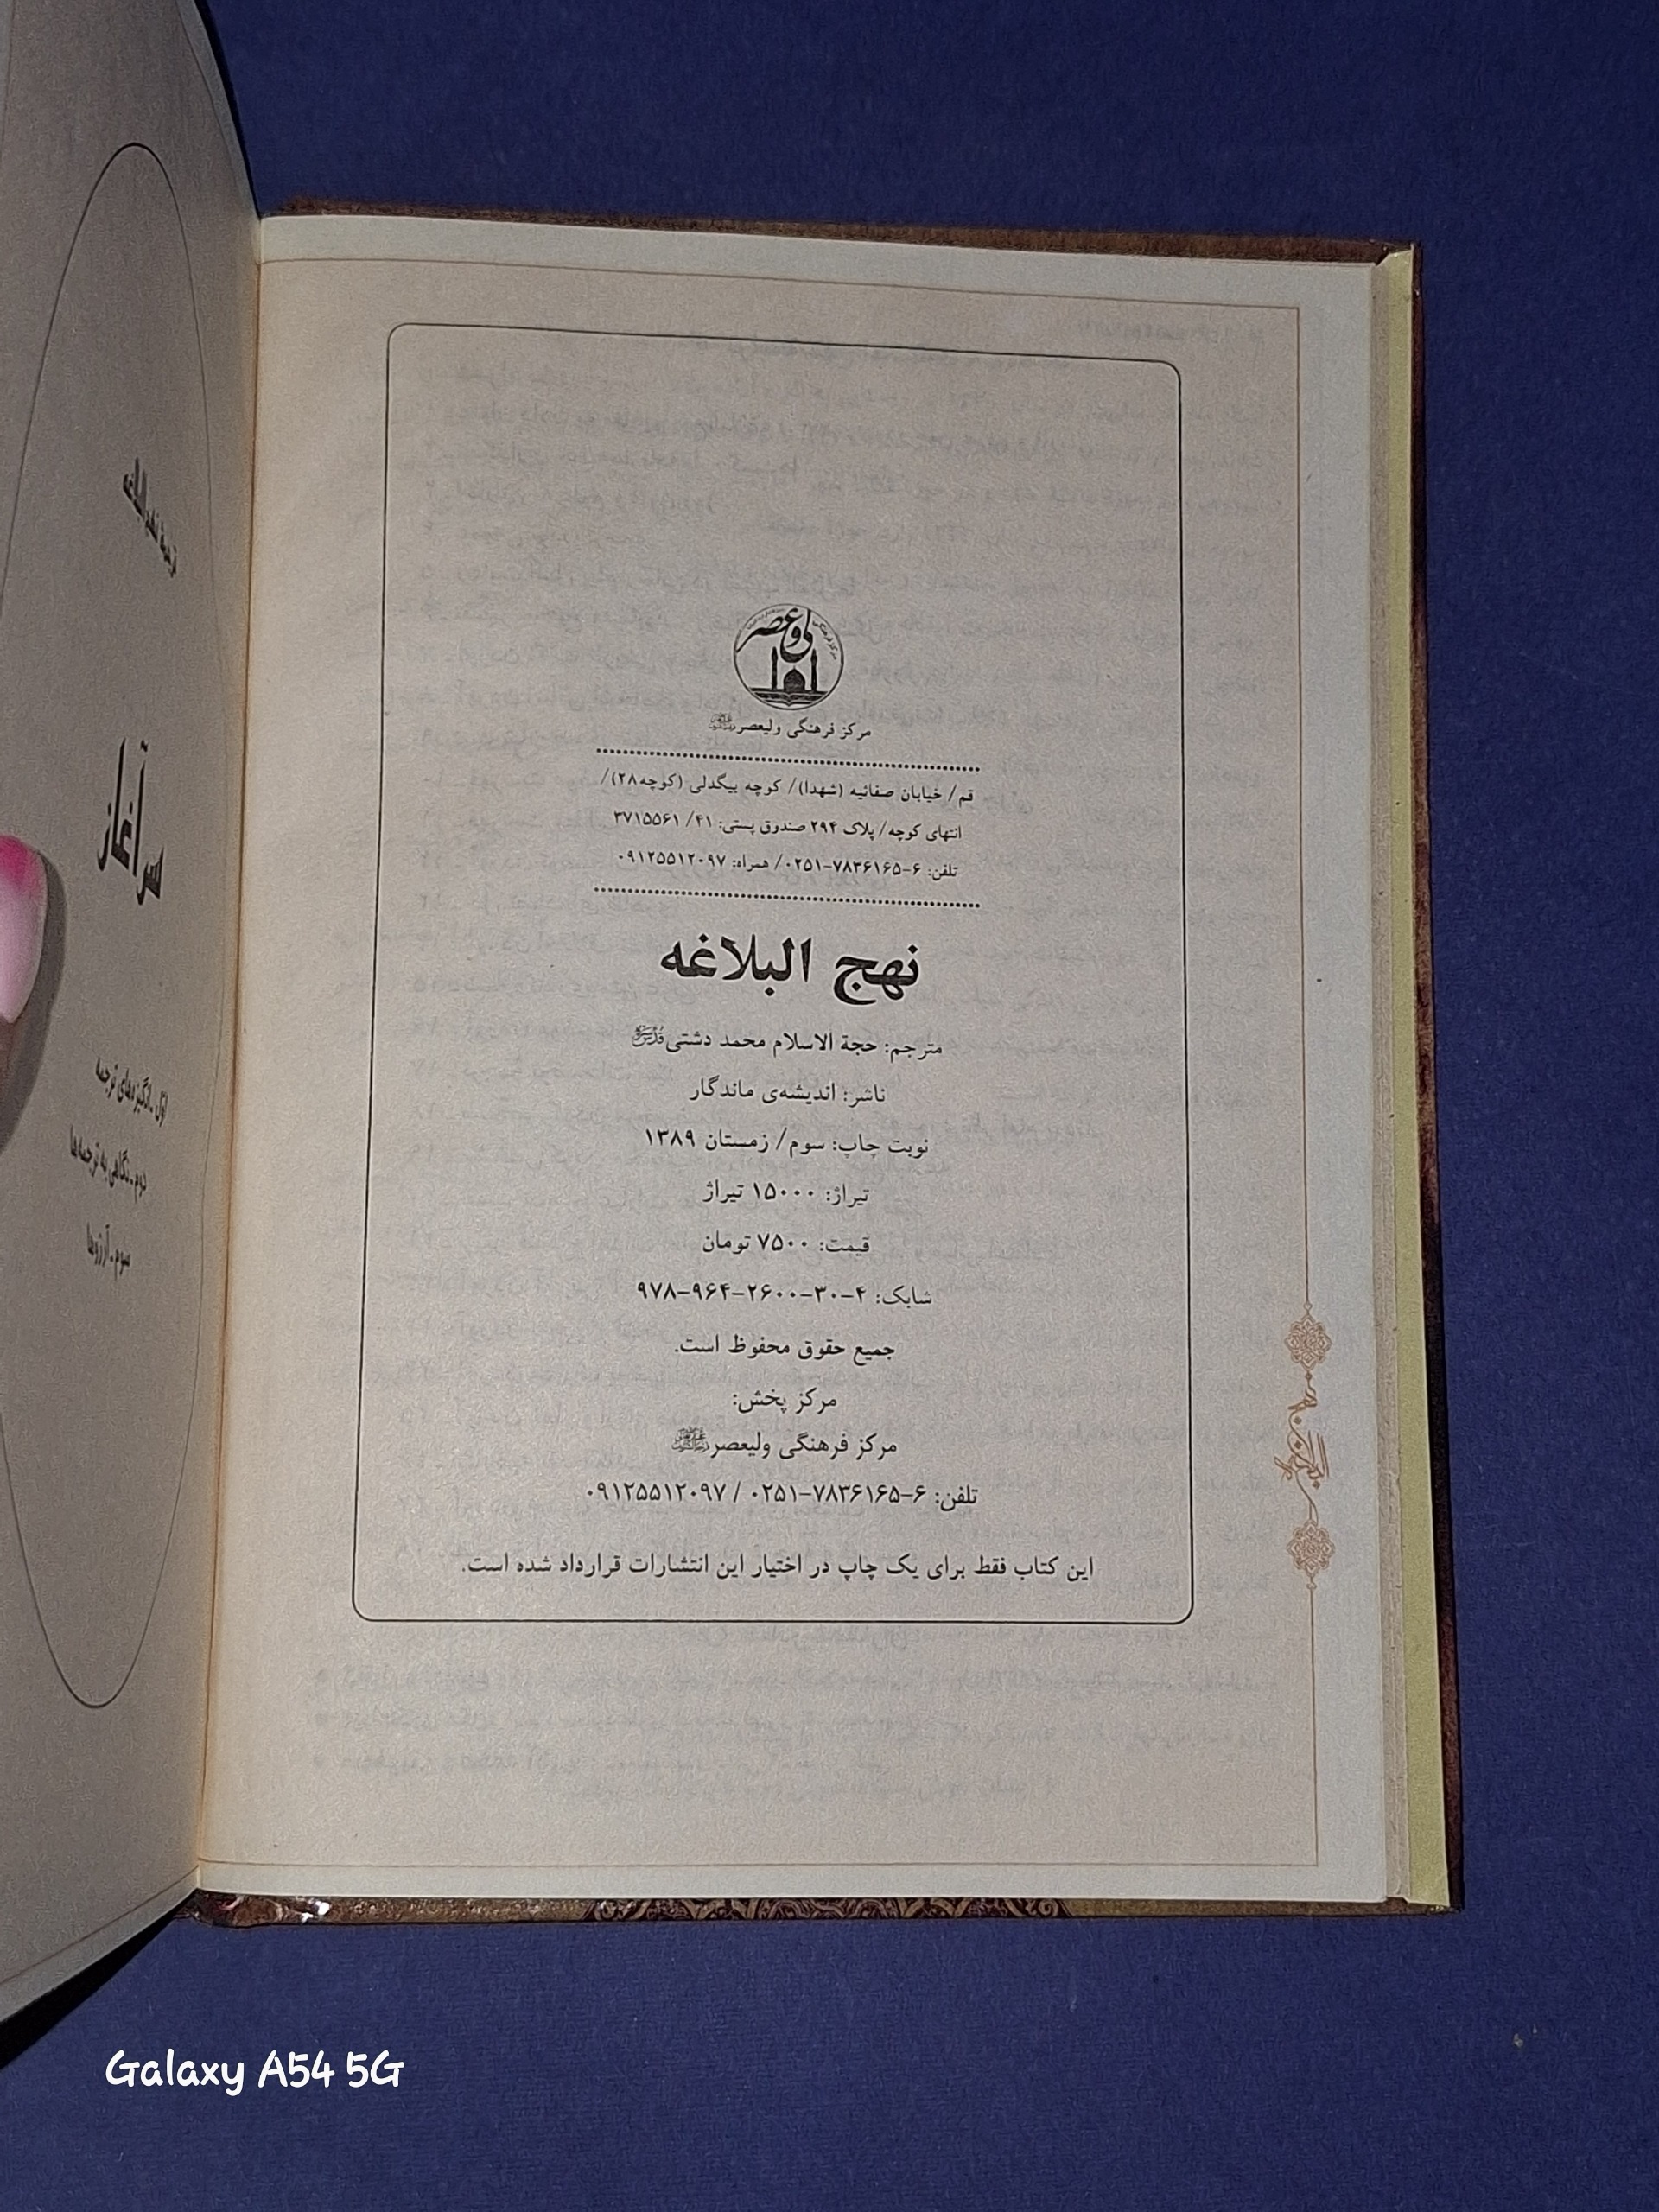 ولی عصر
مرکز فرهنگی
مرکز فرهنگی ولیعصر
قم/ خیابان صفائیه (شهدا)/ کوچه بیگدلی (کوچه۲۸)/
انتهای کوچه/ پلاک ۲۹۴ صندوق پستی: ۴۱/ ۳۷۱۵۵۶۱
تلفن: ۶-۷۸۳۶۱۶۵-۰۲۵۱/ همراه: ۰۹۱۲۵۵۱۲۰۹۷
نهج البلاغه
مترجم: حجة الاسلام محمد دشتی
ناشر: اندیشه‌ی ماندگار
نوبت چاپ: سوم/ زمستان ۱۳۸۹
تیراژ: ۱۵۰۰۰ تیراژ
قیمت: ۷۵۰۰ تومان
شابک: ۴-۳۰-۲۶۰۰-۹۶۴-۹۷۸
جمیع حقوق محفوظ است.
مرکز پخش:
مرکز فرهنگی ولیعصر
تلفن: ۶-۷۸۳۶۱۶۵-۰۲۵۱ / ۰۹۱۲۵۵۱۲۰۹۷
این کتاب فقط برای یک چاپ در اختیار این انتشارات قرارداد شده است.
ترجمه نهج البلاغه
سرآغاز
اوّل ـ انگیزه‌های ترجمه
دوم ـ نگاهی به ترجمه‌ها
سوم ـ آرزوها
Galaxy A54 5G